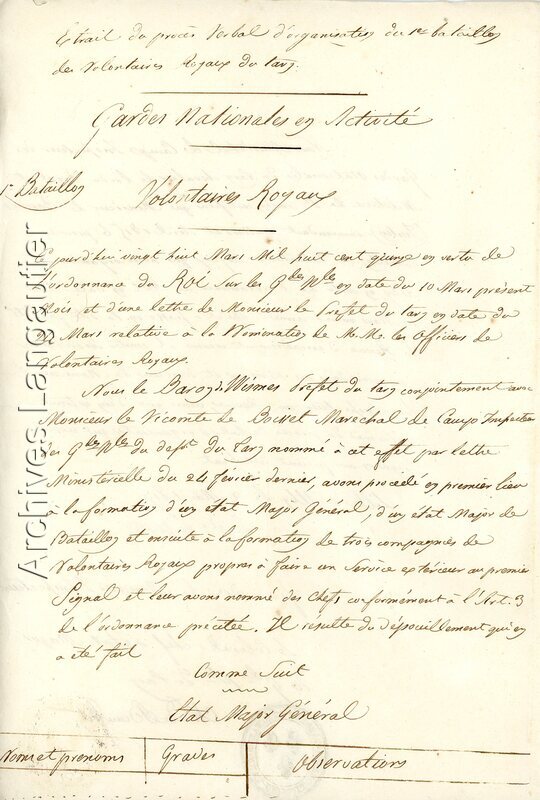 Extrait du procès Verbal d'organisation du 1er bataillon
des Volontaires Royaux du tarn.
Gardes Nationales en Activité
1er Bataillon
Volontaires Royaux
jourd'hui vingt huit Mars Mil huit cent quinze en vertu de
l'ordonnance du Roi sur les Gdes Nles en date du 10 Mars présent
Mois et d'une lettre de Monsieur le Prefet du tarn en date du
Mars relative à la Nomination de M.M. les Officiers de
Volontaires Royaux.
Nous le Baron de Wismes Prefet du tarn conjointement avec
Monsieur le Vicomte de Boisset Maréchal de Camp Inspecteur
des Gdes Nles du dept. du Tarn nommé à cet effet par lettre
Ministerielle du 24 février dernier, avons procédé en premier lieu
à la formation d'un état Major Général, d'un état Major de
Bataillon et ensuite à la formation de trois compagnies de
Volontaires Royaux propres à faire un Service extérieur au premier
Signal et leur avons nommé des Chefs conformément à l'Art. 3
de l'ordonnance précitée. Il resulte du dépouillement qui en
a été fait
Comme Suit
Etat Major Général
Noms et prenoms Grades Observations
Archives Langautier